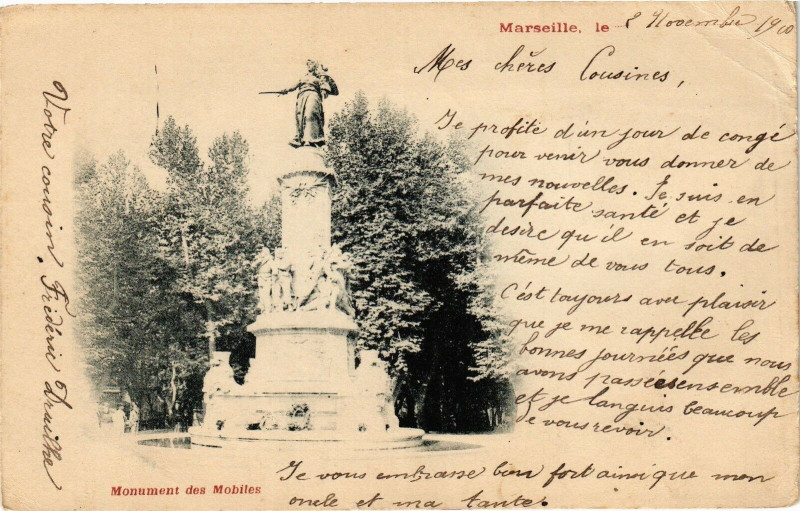 Marseille, le 2 Novembre 1900
Mes chères Cousines,
Je profite d'un jour de congé
pour venir vous donner de
mes nouvelles. Je suis en
parfaite santé et je
desire qu'il en soit de
même de vous tous.
C'est toujours avec plaisir
que je me rappelle les
bonnes journées que nous
avons passées ensemble
et je languis beaucoup
de vous revoir.
Je vous embrasse bien fort ainsi que mon
oncle et ma tante.
Votre cousin. Frédéric
Monument des Mobiles